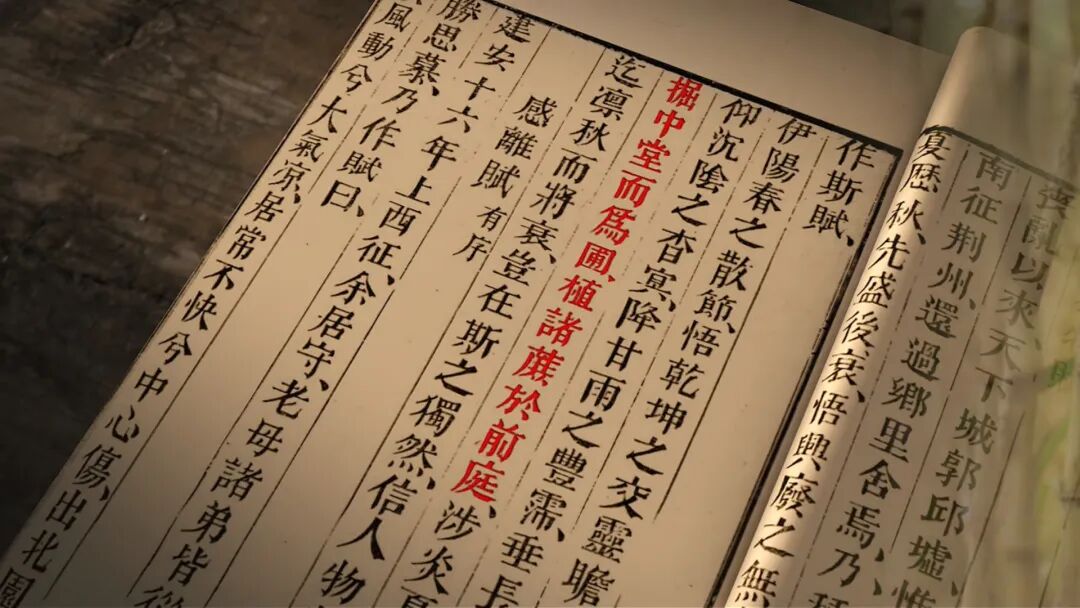 喪亂以來天下城郭邱墟、惟
南征荊州、還過鄉里舍焉、乃
夏歷秋、先盛後衰、悟興廢之無
作斯賦、
伊陽春之散節、悟乾坤之交靈瞻
仰沉陰之杳冥、降甘雨之豐濡、垂長
掘中堂而爲圃、植諸蔗於前庭、涉炎夏
迄凛秋而將衰、豈在斯之獨然、信人物
感離賦 有序
建安十六年上西征、余居守、老母諸弟皆從
勝思慕、乃作賦曰、
風動兮大氣凉、居常不快兮中心傷、出北園